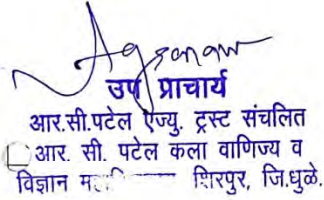 उप प्राचार्य
आर.सी.पटेल एज्यु. ट्रस्ट संचलित
आर. सी. पटेल कला वाणिज्य व
विज्ञान शिरपुर, जि.धुळे.